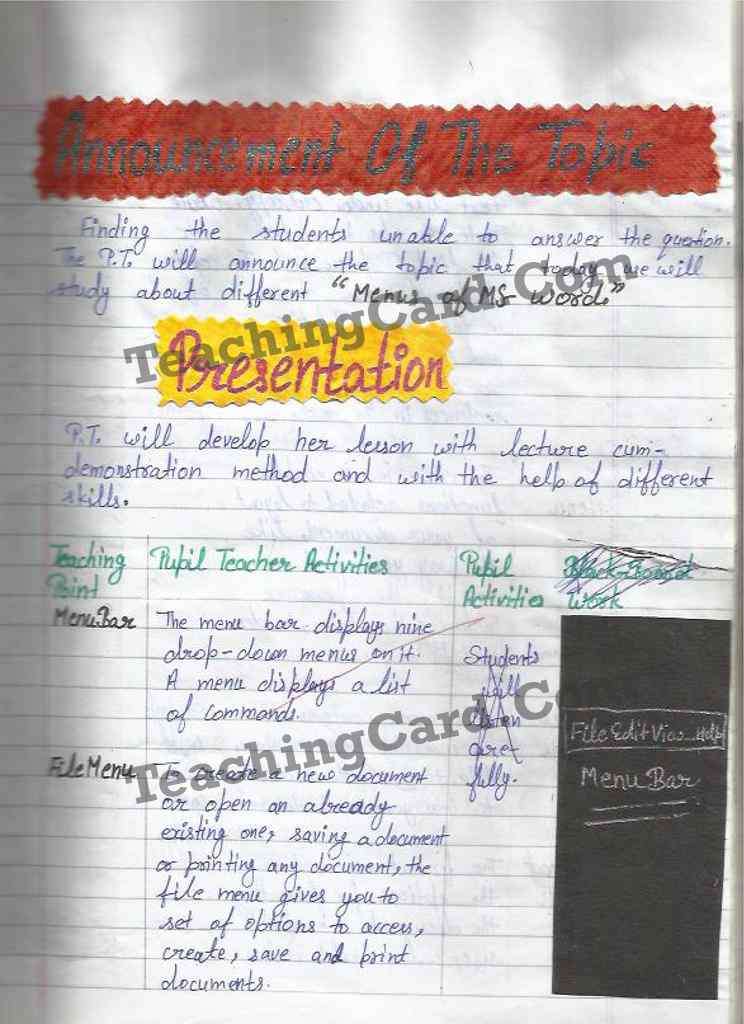 Announcement Of The Topic
Finding the students unable to answer the question.
The P.T. will announce the topic that today we will
study about different "Menus of MS Word."
TeachingCard.Com
Presentation
P.T. will develop her lesson with lecture cum-
demonstration method and with the help of different
skills.
Teaching Point
Pupil Teacher Activities
Pupil Activities
Black-Board Work
Menu Bar
The menu bar displays nine
drop-down menus on it.
A menu displays a list
of commands.
Students
will
listen
care-
fully.
File Edit View...Help
Menu Bar
TeachingCard.Com
File Menu
To create a new document
or open an already
existing one, saving a document
or printing any document, the
file menu gives you to
set of options to access,
create, save and print
documents.